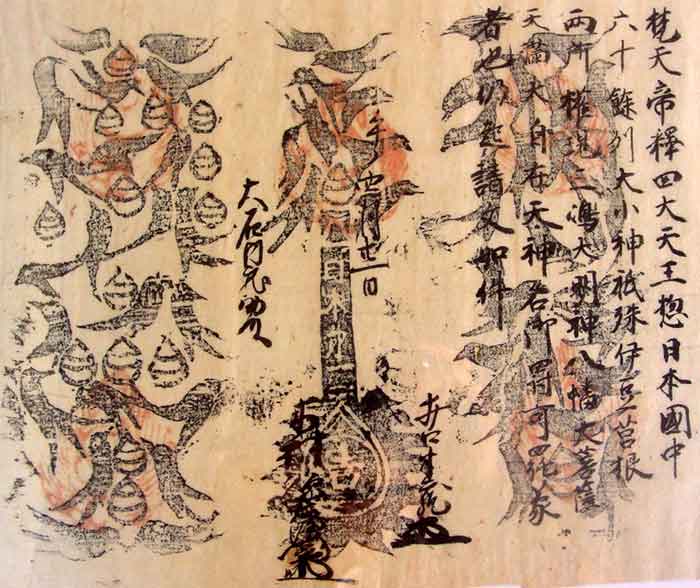 梵天帝釋四大天王惣日本國中
六十餘州大小神祇殊伊豆筥根
両所権現三嶋大明神八幡大菩薩
天満大自在天神各御罸可罷蒙
者也仍起請文如件
年四月廿一日
井口
大石内蔵助